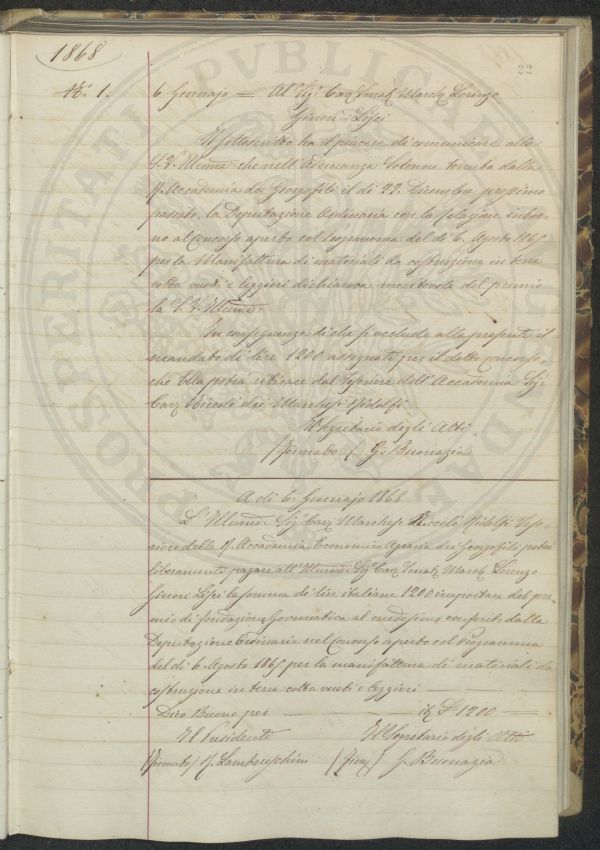 1868
22
N.° 1.
6. Gennajo = Al Sig.r Cav. Senat.e March. Lorenzo
Ginori-Lisci
Il sottoscritto ha il piacere di comunicare alla
S. V. Illma che nell'Adunanza Solenne tenuta dalla
R. Accademia dei Georgofili il dì 22. Dicembre prossimo
passato, la Deputazione Ordinaria con la relazione intor-
no al Concorso aperto col Programma del dì 6. Agosto 1865
per la Manifattura di materiali da costruzione in terra
cotta vuoti e leggieri dichiarava meritevole del premio
la S. V. Illma.
In conseguenza di che si acclude alla presente il
mandato di lire 1200 assegnate per il detto concorso,
che Ella potrà ritirare dal Tesoriere dell'Accademia Sig.r
Cav. Niccolò dei Marchesi Ridolfi
Il Segretario degli Atti
(Firmato) G. Buonazia
A dì 6. Gennajo 1868
L'Illmo. Sig.r Cav. Marchese Niccolò Ridolfi Teso-
riere della R. Accademia Economico Agraria dei Georgofili potrà
liberamente pagare all'Illmo. Sig.r Cav. Senat.e March. Lorenzo
Ginori Lisci la somma di lire italiane 1200 importare del pre-
mio di fondazione Governativa al medesimo conferito dalla
Deputazione Ordinaria nel Concorso aperto col Programma
del dì 6. Agosto 1865 per la manifattura di materiali da
costruzione in terra cotta vuoti e leggieri
Dico Buono per £ 1200 =
Il Presidente Il Segretario degli Atti
(Firmato) R. Lambruschini (Firm.) G. Buonazia
PROSPERITATI PVBLICAE AVGENDAE